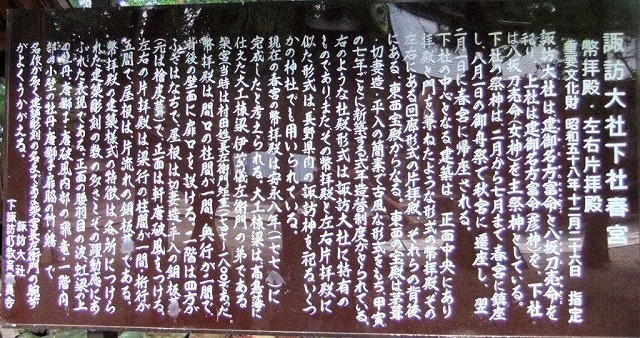 諏訪大社下社春宮
幣拝殿 左右片拝殿
重要文化財 昭和五十八年十二月二十六日 指定
諏訪大社は建御名方富命と八坂刀売命を
祀り、上社は建御名方富命(彦神)を、下社
は八坂刀売命(女神)を主祭神としている。
下社の祭神は、二月から七月まで春宮に鎮座
し、八月一日の御舟祭で秋宮に遷座し、翌
二月一日に春宮に帰座される。
下社の中心となる建築は、正面中央にあり
拝殿と門を兼ねたような形式の幣拝殿、その
左右にある回廊形式の片拝殿、それらの背後
にある東西宝殿からなる。東西の宝殿は茅葺
切妻造・平入の簡素で古風な形式をもち、甲寅
の七年ごとに新築する式年造替制度がとられている。
右のような社殿形式は諏訪大社に特有の
ものであり、またその幣拝殿や左右片拝殿に
似た形式は長野県内の諏訪神を祀るいくつ
かの神社でも用いられている。
現在の春宮の幣拝殿は安永八年(一七七九)に
完成したと考えられる。大工棟梁は高島藩に
仕えた大工棟梁伊藤儀左衛門の弟である
柴宮(当時は村田)長左衛門矩重 であった。
幣拝殿は、間口の柱間が一間、奥行が二間で、
背後の壁面に扉口を設ける。一階は四方が
ふきはなちで、屋根は切妻造・平入の銅板葺
(元は桧皮葺)で、正面は軒唐破風をつける。
左右の片拝殿は梁行の柱間が一間、桁行が
五間で、屋根は片流れの銅板葺である。
幣拝殿の建築様式の特徴は各所につけら
れた建築彫刻の数の多さとその躍動感にあ
ふれた表現である。正面の腰羽目の波、虹梁の上
の牡丹・唐獅子、唐破風内部の飛竜、一階内
部の小壁の牡丹・唐獅子、扉脇の竹・鶴、で
名作が多く建築彫刻の名手である柴宮長左衛門の腕前
がよくうかがえる。
諏訪大社
下諏訪町教育委員会